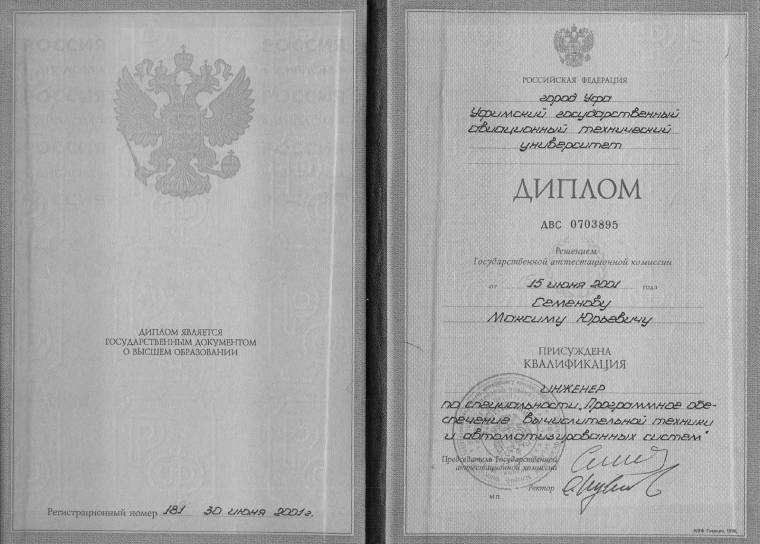 ДИПЛОМ ЯВЛЯЕТСЯ
ГОСУДАРСТВЕННЫМ ДОКУМЕНТОМ
О ВЫСШЕМ ОБРАЗОВАНИИ
Регистрационный номер 181 30 июня 2001г.
РОССИЙСКАЯ ФЕДЕРАЦИЯ
город Уфа
Уфимский государственный
авиационный технический
университет
ДИПЛОМ
ДВС 0703895
Решением
Государственной аттестационной комиссии
от 15 июня 2001 года
Семенову
Максиму Юрьевичу
ПРИСУЖДЕНА
КВАЛИФИКАЦИЯ
ИНЖЕНЕР
по специальности „Программное обе-
спечение вычислительной техники
и автоматизированных систем"
Председатель Государственной
аттестационной комиссии
Ректор
М.П.